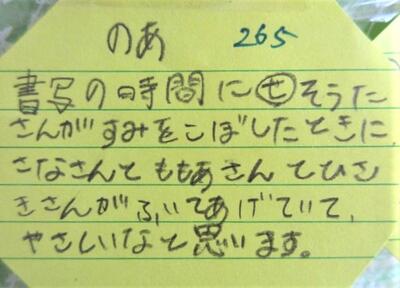 のあ 265
書写の時間に㋝そうた
さんがすみをこぼしたときに、
さなさんとももあさんてひさ
きさんがふいてあげていて、
やさしいなと思います。